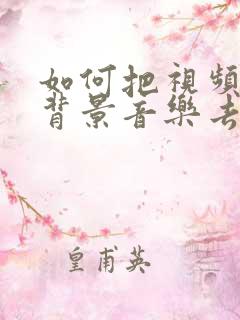 如何把視頻
背景音樂去
皇甫英